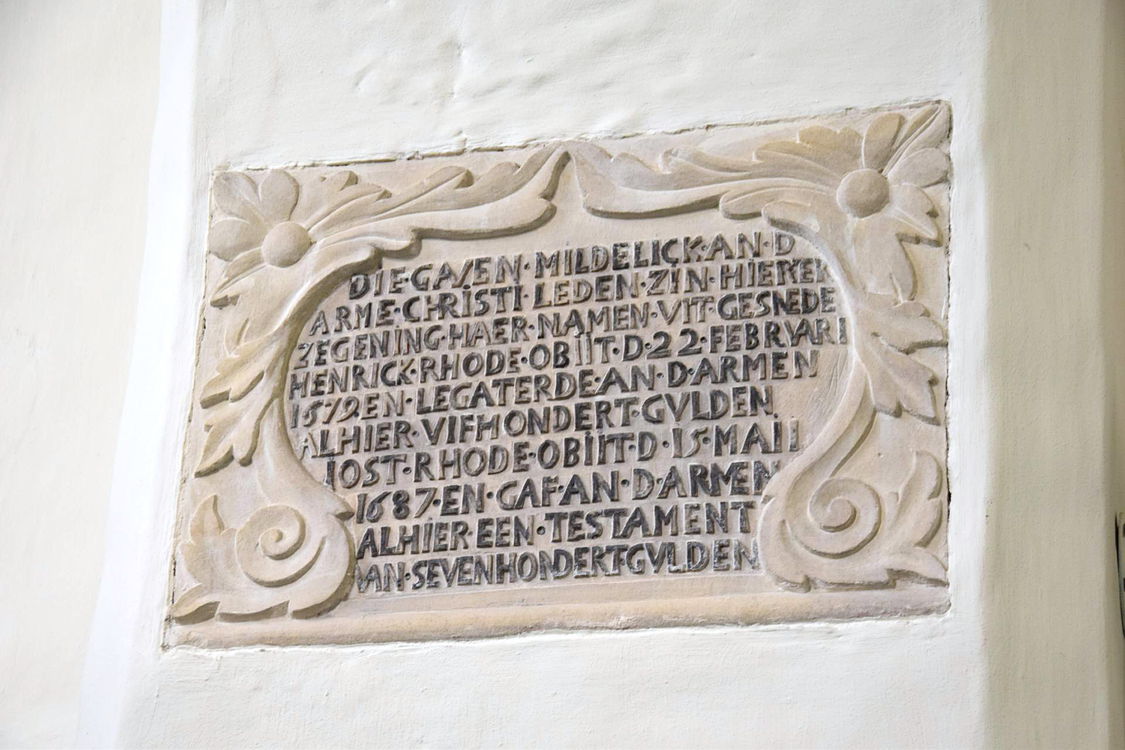 DIE·GAVEN·MILDELICK·AN·D
ARME·CHRISTI·LEDEN·ZIN·HIER·ER
ZEGENING·HAER·NAMEN·VIT·GESNEDE
HENRICK·RHODE·OBIIT·D·22·FEBRVARI
1579·EN·LEGATERDE·AN·D·ARMEN
ALHIER·VIFHONDERT·GVLDEN
IOST·RHODE·OBIIT·D·15·MAII
1687·EN·GAF·AN·D·ARMEN
ALHIER·EEN·TESTAMENT
VAN·SEVENHONDERT·GVLDEN